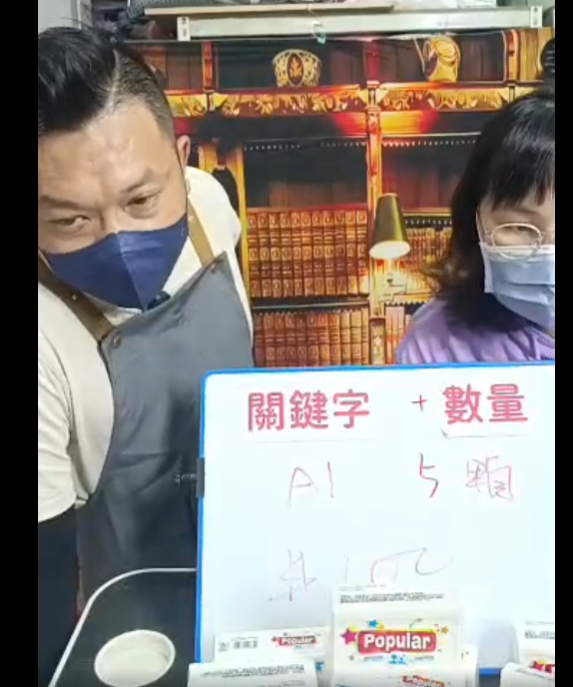 關鍵字 + 數量
A1 5顆
共100
Popular
Popular
Popular